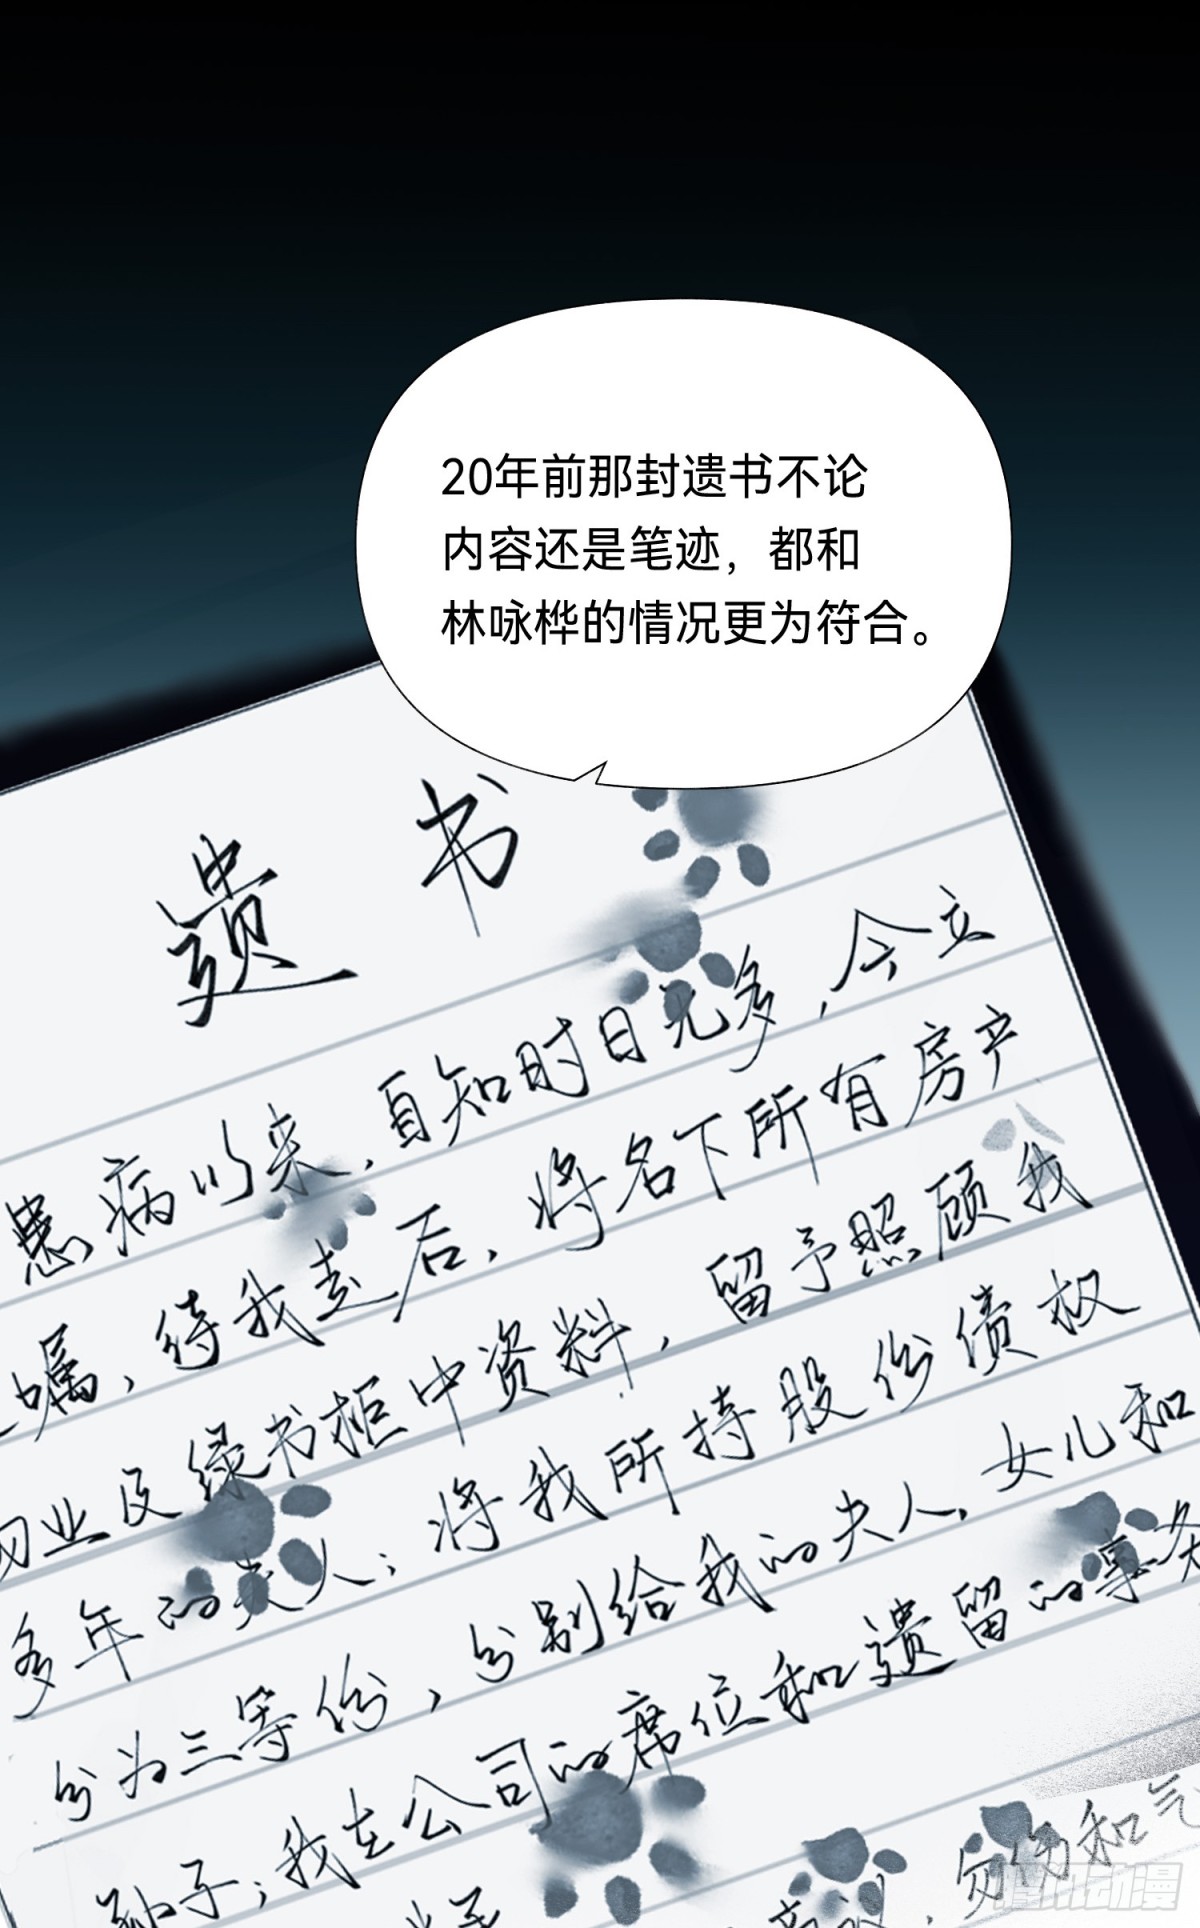 20年前那封遗书不论
内容还是笔迹，都和
林咏桦的情况更为符合。
遗书
患病以来，自知时日无多，今立
嘱，待我去后，将名下所有房产
物业及绿书柜中资料，留予照顾我
多年的夫人；将我所持股份债权
分为三等份，分别给我的夫人、女儿和
孙子；我在公司的席位和遗留的事务
勿伤和气
腾讯动漫